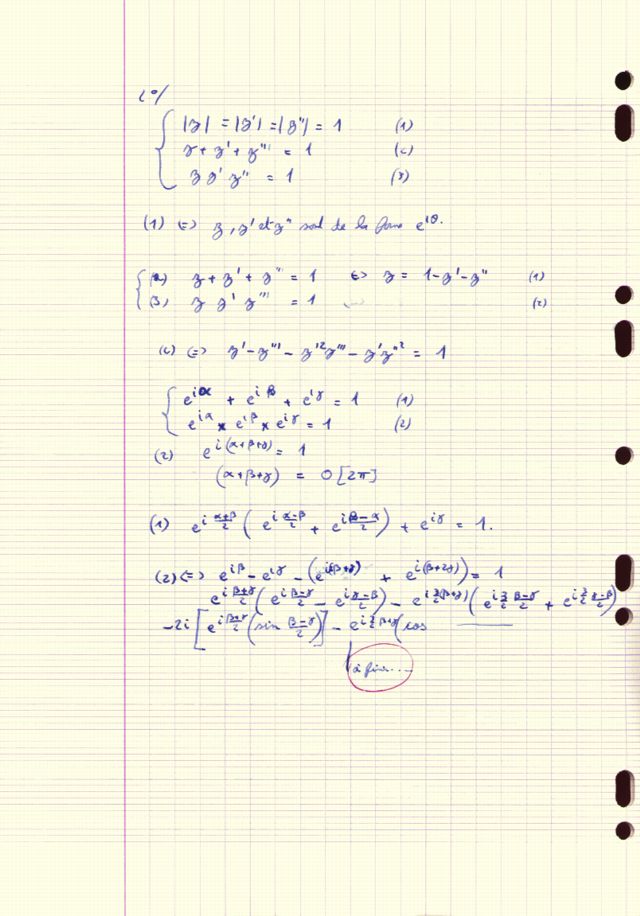 2°/
|z| = |z'| = |z''| = 1 (1)
z + z' + z'' = 1 (2)
z z' z'' = 1 (3)
(1) <=> z, z' et z'' sont de la forme e^{iθ}.
(2) z + z' + z'' = 1 <=> z = 1 - z' - z'' (1)
(3) z z' z'' = 1 (2)
(2) <=> z' - z'' - z'^2 z'' - z' z''^2 = 1
e^{iα} + e^{iβ} + e^{iγ} = 1 (1)
e^{iα} × e^{iβ} × e^{iγ} = 1 (2)
(2) e^{i(α+β+γ)} = 1
(α+β+γ) = 0 [2π]
(1) e^{i (α+β)/2} ( e^{i (α-β)/2} + e^{i (β-α)/2} ) + e^{iγ} = 1.
(2) <=> e^{iβ} - e^{iγ} - ( e^{i(β+γ)} + e^{i(β+2γ)} ) = 1
e^{i (β+γ)/2} ( e^{i (β-γ)/2} - e^{i (γ-β)/2} ) - e^{i 3/2 (β+γ)} ( e^{i 3/2 (β-γ)/2} + e^{i 3/2 (γ-β)/2} )
-2i [ e^{i (β+γ)/2} ( sin (β-γ)/2 ) ] - e^{i 3/2 β+γ} ( cos
à finir....